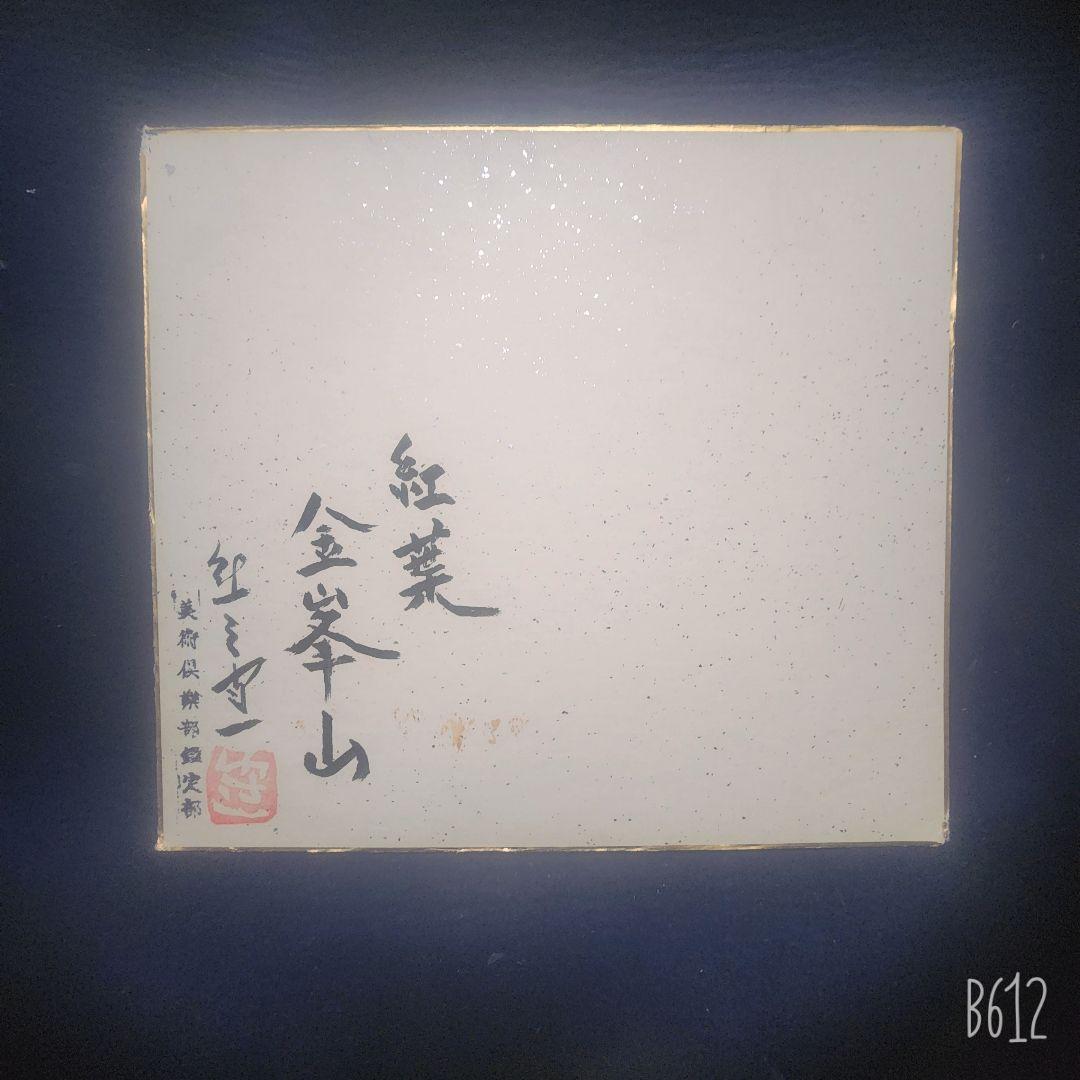 紅葉
金峯山
美術倶楽部鑑定部
B612